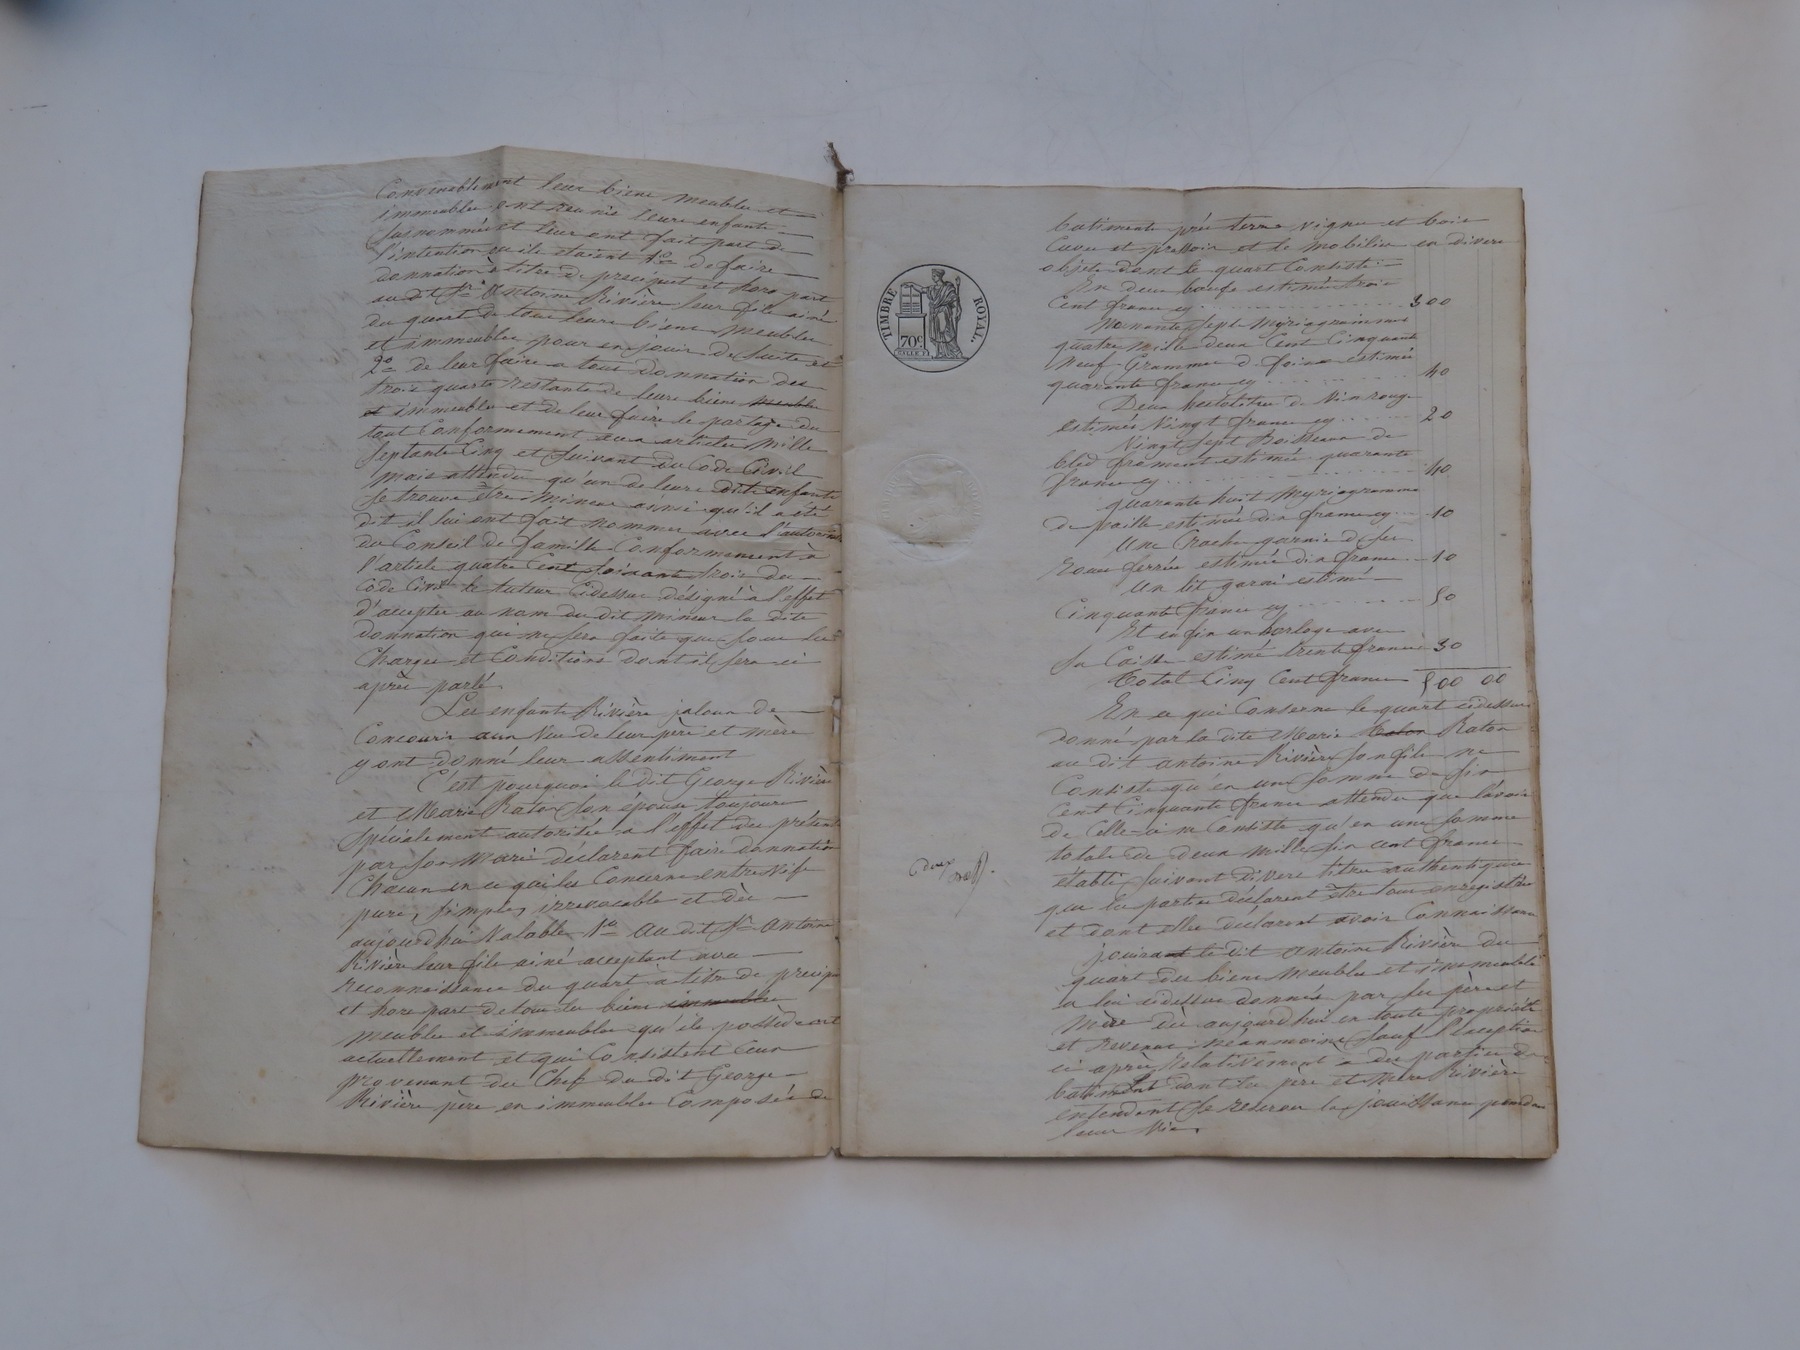 Convenablement leur biens meubles et
immeubles ont reunis leurs enfants
susnommés et leur ont fait part de
l'intention qu'ils etaient 1o de faire
donnation à titre de preciput et hors part
au dit Sr Antoine Rivière leur fils ainé
du quart de tous leurs biens meubles
et immeubles pour en jouir de suite et
2o de leur faire a tous donnation des
trois quarts restants de leurs biens meubles
et immeubles et de leur faire le partage du
tout Conformement aux articles Mille
septante Cinq et suivant du Code Civil
mais attendu qu'un de leurs dits enfants
se trouve être mineur ainsi qu'il a été
dit il lui ont fait nommer avec l'autorité
du Conseil de famille Conformement à
l'article quatre Cent soixante trois du
Code Civil le tuteur Cidessus désigné à l'effet
d'accepter au nom du dit mineur la dite
donnation qui ne sera faite que sous les
Charges et Conditions dont il sera ci
après parlé.
Les enfants Rivière jaloux de
Concourir aux Veu de leur père et mère
y ont donné leur assentiment
C'est pourquoi le dit George Rivière
et Marie Raton son épouse toujours
spécialement autorisée a l'effet des présentes
par son Mari déclarent faire donnation
Chacun en ce qui les Concerne entre Vifs
pure, simple, irrevocable et dès
aujourd'hui Valable 1o Au dit Sr Antoine
Rivière leur fils ainé acceptant avec
reconnaissance du quart à titre de precipu
et hors part de tous les biens immeubles
meubles et immeubles qu'ils possèdent
actuellement et qui Consistent Ceux
provenant du Chef du dit George
Rivière père en immeubles Composés de
TIMBRE ROYAL.
70c
batiments près terres vignes et bois
Cuves et pressoir et le mobilier en divers
objets dont le quart Consiste
En deux bœufs estimés trois
Cent francs cy 300
Nonante sept Myriagrammes
quatre mille deux Cent Cinquante
Neuf Grammes de foins estimés
quarante francs cy 40
Deux hectolitres de Vin rouge
estimés Vingt francs cy 20
Vingt sept Boisseaux de
bled froment estimés quarante
francs cy 40
quarante huit Myriagrammes
de paille estimés dix francs cy 10
Une Crache garnie de ses
Roues ferrées estimée dix francs 10
Un lit garni estimé
Cinquante francs cy 50
Et enfin un horloge avec
sa Caisse estimé trente francs 30
Total Cinq Cent francs 500 00
En ce qui Conserne le quart cidessus
donné par la dite Marie Raton
au dit Antoine Rivière son fils ne
Consiste qu'en une somme de six
Cent Cinquante francs attendu que l'avoir
de Celle-ci ne Consiste qu'en une somme
totale de deux mille six cent francs
établi suivant divers titres authentiques
que les parties déclarent être tous enregistrés
et dont elles déclarent avoir Connaissance
deux
jouira le dit Antoine Rivière du
quart des biens Meubles et immeubles
a lui cidessus donnés par ses père et
Mère dès aujourd'hui en toute propriété
et Revenus neanmoins sauf l'exception
ci après Relativement a des parties de
batiment dont les père et Mère Rivière
entendent se reserver la jouissance pendant
leur Vie.